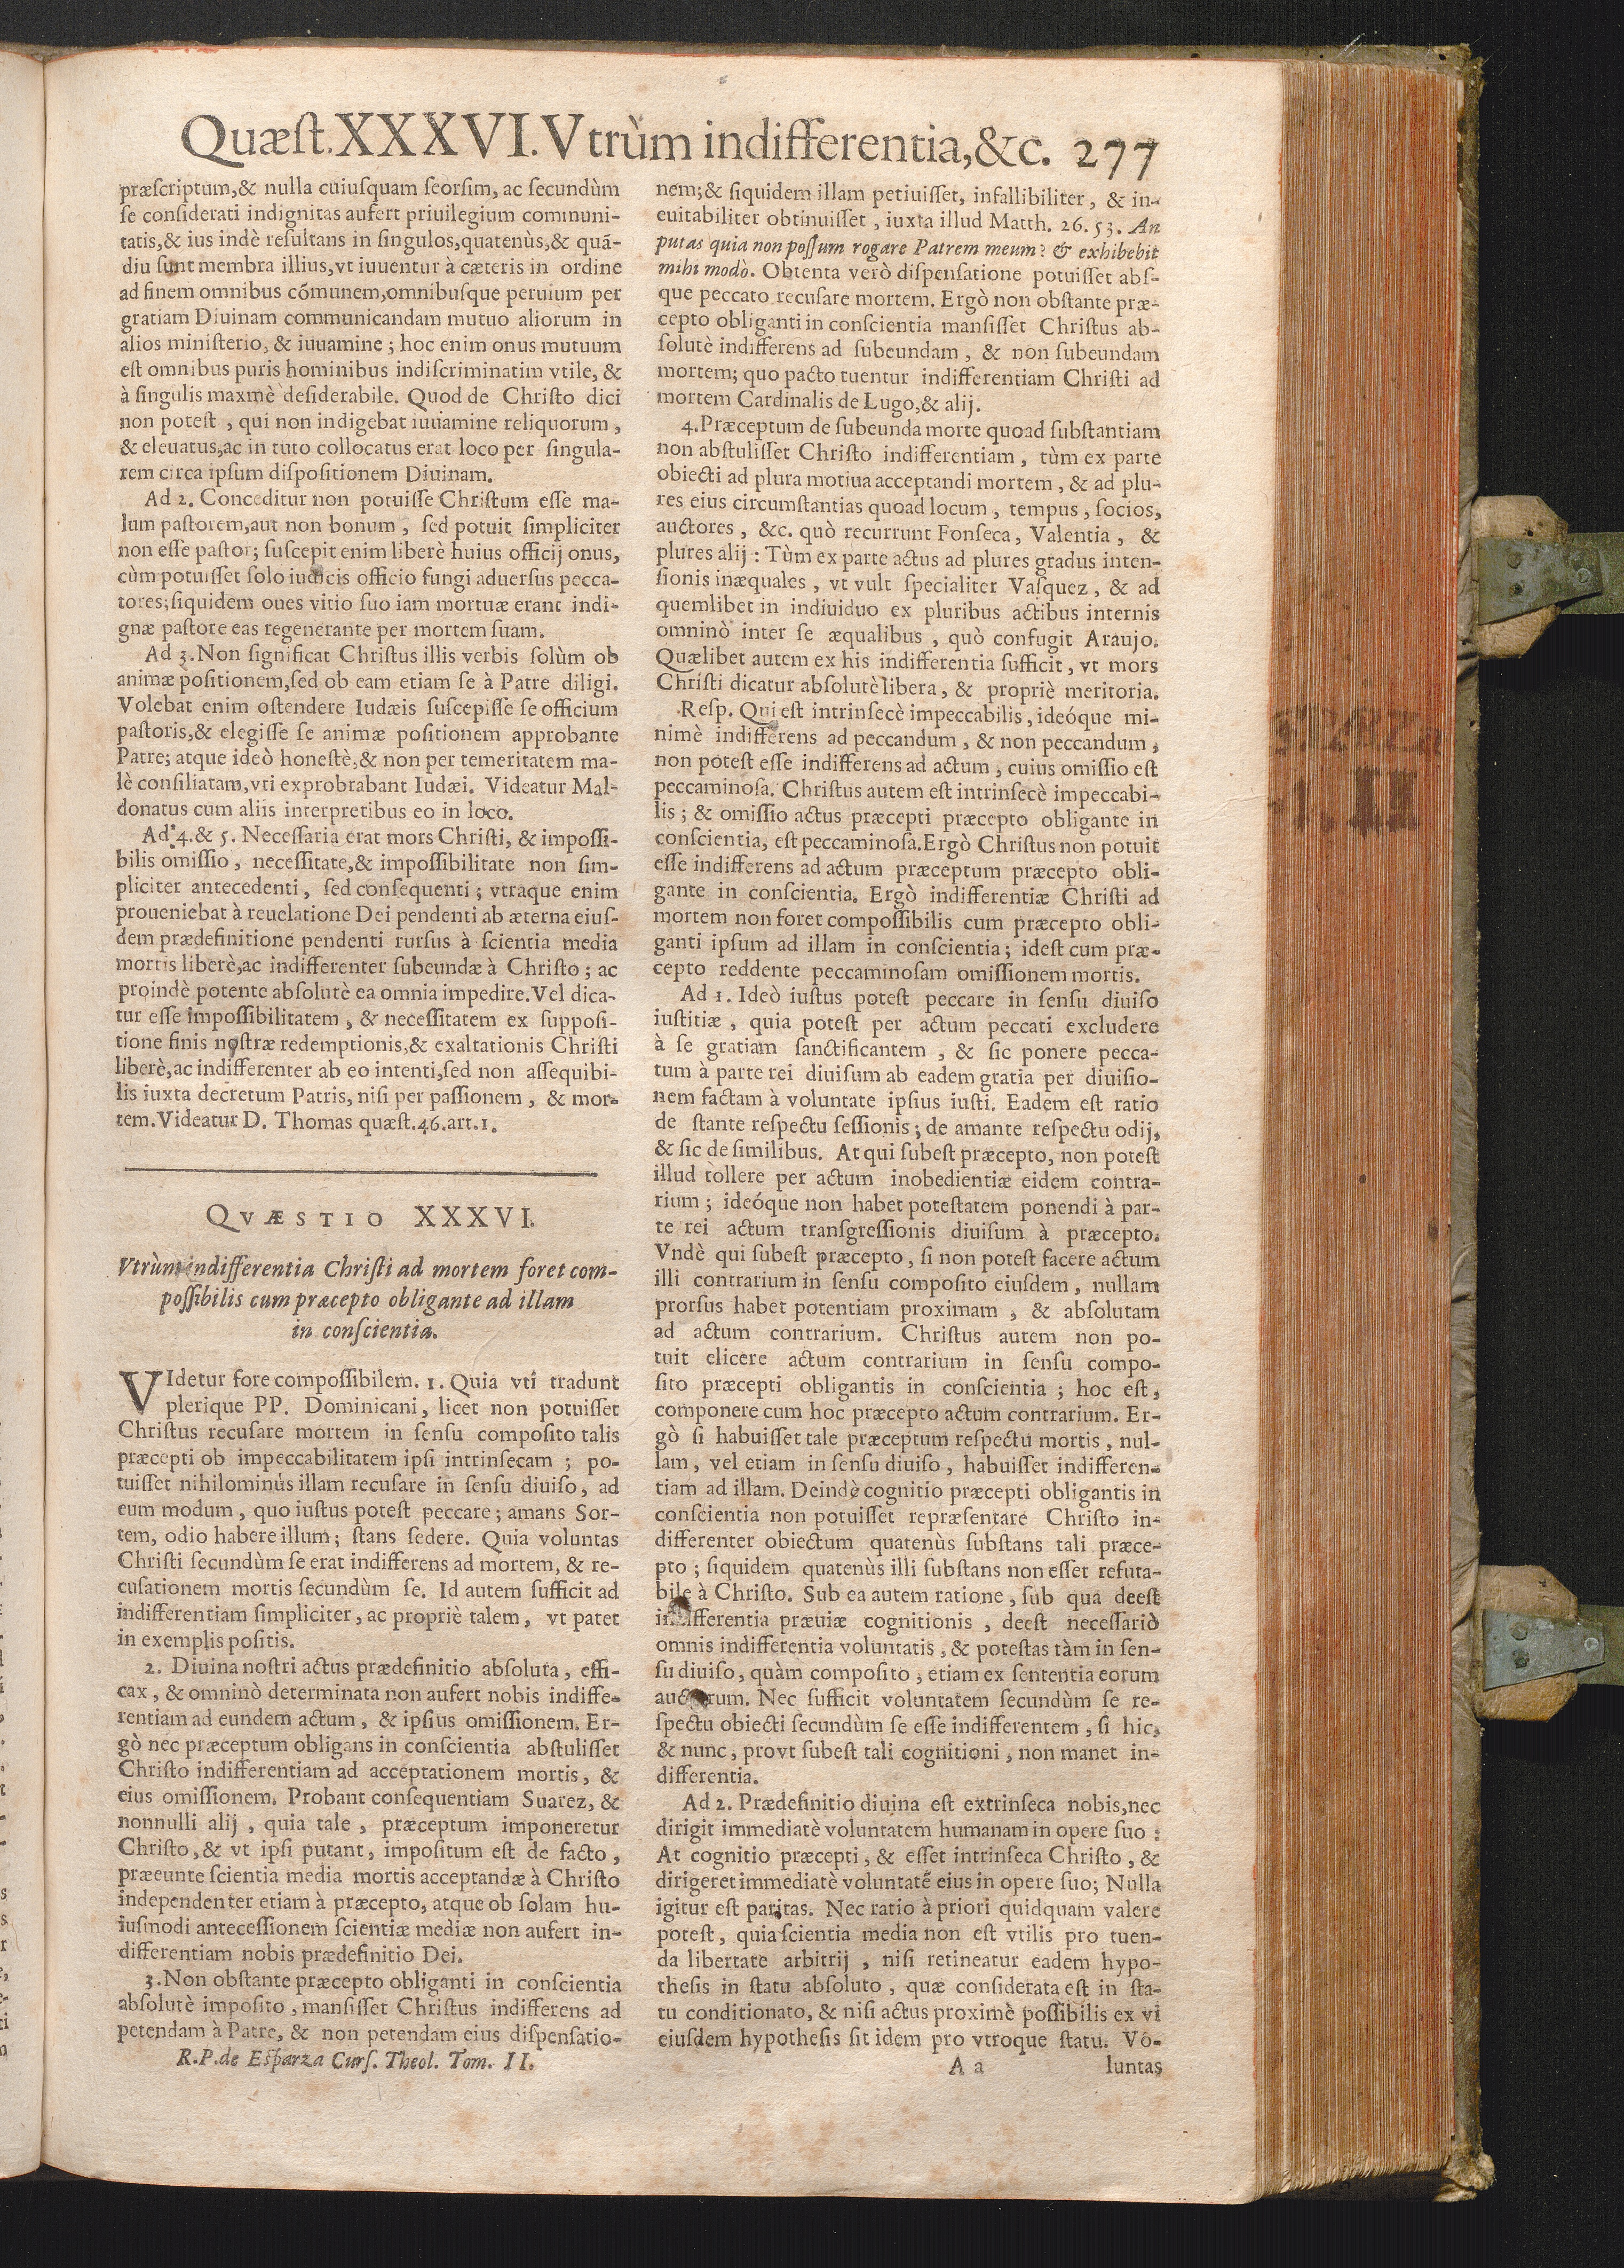 Quæst. XXXVI. Vtrùm indifferentia, &c. 277
præscriptum, & nulla cuiusquam seorsim, ac secundùm
se considerati indignitas aufert priuilegium communi-
tatis, & ius indè resultans in singulos, quatenùs, & quā-
diu sunt membra illius, vt iuuentur à cæteris in ordine
ad finem omnibus cómunem, omnibusque peruium per
gratiam Diuinam communicandam mutuo aliorum in
alios ministerio, & iuuamine; hoc enim onus mutuum
est omnibus puris hominibus indiscriminatim vtile, &
à singulis maxmè desiderabile. Quod de Christo dici
non potest, qui non indigebat iuuamine reliquorum,
& eleuatus, ac in tuto collocatus erat loco per singula-
rem circa ipsum dispositionem Diuinam.
Ad 2. Conceditur non potuisse Christum esse ma-
lum pastorem, aut non bonum, sed potuit simpliciter
non esse pastor; suscepit enim liberè huius officij onus,
cùm potuisset solo iudicis officio fungi aduersus pecca-
tores; siquidem oues vitio suo iam mortuæ erant indi-
gnæ pastore eas regenerante per mortem suam.
Ad 3. Non significat Christus illis verbis solùm ob
animæ positionem, sed ob eam etiam se à Patre diligi.
Volebat enim ostendere Iudæis suscepisse se officium
pastoris, & elegisse se animæ positionem approbante
Patre; atque ideò honestè, & non per temeritatem ma-
lè consiliatam, vti exprobrabant Iudæi. Videatur Mal-
donatus cum aliis interpretibus eo in loco.
Ad 4. & 5. Necessaria erat mors Christi, & impossi-
bilis omissio, necessitate, & impossibilitate non sim-
pliciter antecedenti, sed consequenti; vtraque enim
proueniebat à reuelatione Dei pendenti ab æterna eius-
dem prædefinitione pendenti rursus à scientia media
mortis liberè, ac indifferenter subeundæ à Christo; ac
proindè potente absolutè ea omnia impedire. Vel dica-
tur esse impossibilitatem, & necessitatem ex supposi-
tione finis nostræ redemptionis, & exaltationis Christi
liberè, ac indifferenter ab eo intenti, sed non assequibi-
lis iuxta decretum Patris, nisi per passionem, & mor-
tem. Videatur D. Thomas quæst. 46. art. 1.
QVÆSTIO XXXVI.
Vtrùm indifferentia Christi ad mortem foret com-
possibilis cum præcepto obligante ad illam
in conscientia.
VIdetur fore compossibilem. 1. Quia vti tradunt
plerique PP. Dominicani, licet non potuisset
Christus recusare mortem in sensu composito talis
præcepti ob impeccabilitatem ipsi intrinsecam; po-
tuisset nihilominùs illam recusare in sensu diuiso, ad
eum modum, quo iustus potest peccare; amans Sor-
tem, odio habere illum; stans sedere. Quia voluntas
Christi secundùm se erat indifferens ad mortem, & re-
cusationem mortis secundùm se. Id autem sufficit ad
indifferentiam simpliciter, ac propriè talem, vt patet
in exemplis positis.
2. Diuina nostri actus prædefinitio absoluta, effi-
cax, & omninò determinata non aufert nobis indiffe-
rentiam ad eundem actum, & ipsius omissionem. Er-
gò nec præceptum obligans in conscientia abstulisset
Christo indifferentiam ad acceptationem mortis, &
eius omissionem. Probant consequentiam Suarez, &
nonnulli alij, quia tale, præceptum imponeretur
Christo, & vt ipsi putant, impositum est de facto,
præeunte scientia media mortis acceptandæ à Christo
independenter etiam à præcepto, atque ob solam hu-
iusmodi antecessionem scientiæ mediæ non aufert in-
differentiam nobis prædefinitio Dei.
3. Non obstante præcepto obliganti in conscientia
absolutè imposito, mansisset Christus indifferens ad
petendam à Patre, & non petendam eius dispensatio-
R.P. de Esparza Curs. Theol. Tom. II.
nem; & siquidem illam petiuisset, infallibiliter, & in-
euitabiliter obtinuisset, iuxta illud Matth. 26. 53. An
putas quia non possum rogare Patrem meum? & exhibebit
mihi modò. Obtenta verò dispensatione potuisset abs-
que peccato recusare mortem. Ergò non obstante præ-
cepto obliganti in conscientia mansisset Christus ab-
solutè indifferens ad subeundam, & non subeundam
mortem; quo pacto tuentur indifferentiam Christi ad
mortem Cardinalis de Lugo, & alij.
4. Præceptum de subeunda morte quoad substantiam
non abstulisset Christo indifferentiam, tùm ex parte
obiecti ad plura motiua acceptandi mortem, & ad plu-
res eius circumstantias quoad locum, tempus, socios,
auctores, &c. quò recurrunt Fonseca, Valentia, &
plures alij: Tùm ex parte actus ad plures gradus inten-
sionis inæquales, vt vult specialiter Vasquez, & ad
quemlibet in indiuiduo ex pluribus actibus internis
omninò inter se æqualibus, quò confugit Araujo.
Quælibet autem ex his indifferentia sufficit, vt mors
Christi dicatur absolutè libera, & propriè meritoria.
Resp. Qui est intrinsecè impeccabilis, ideóque mi-
nimè indifferens ad peccandum, & non peccandum,
non potest esse indifferens ad actum, cuius omissio est
peccaminosa. Christus autem est intrinsecè impeccabi-
lis; & omissio actus præcepti præcepto obligante in
conscientia, est peccaminosa. Ergò Christus non potuit
esse indifferens ad actum præceptum præcepto obli-
gante in conscientia. Ergò indifferentiæ Christi ad
mortem non foret compossibilis cum præcepto obli-
ganti ipsum ad illam in conscientia; idest cum præ-
cepto reddente peccaminosam omissionem mortis.
Ad 1. Ideò iustus potest peccare in sensu diuiso
iustitiæ, quia potest per actum peccati excludere
à se gratiam sanctificantem, & sic ponere pecca-
tum à parte rei diuisum ab eadem gratia per diuisio-
nem factam à voluntate ipsius iusti. Eadem est ratio
de stante respectu sessionis; de amante respectu odij,
& sic de similibus. At qui subest præcepto, non potest
illud tollere per actum inobedientiæ eidem contra-
rium; ideóque non habet potestatem ponendi à par-
te rei actum transgressionis diuisum à præcepto.
Vndè qui subest præcepto, si non potest facere actum
illi contrarium in sensu composito eiusdem, nullam
prorsus habet potentiam proximam, & absolutam
ad actum contrarium. Christus autem non po-
tuit elicere actum contrarium in sensu compo-
sito præcepti obligantis in conscientia; hoc est,
componere cum hoc præcepto actum contrarium. Er-
gò si habuisset tale præceptum respectu mortis, nul-
lam, vel etiam in sensu diuiso, habuisset indifferen-
tiam ad illam. Deindè cognitio præcepti obligantis in
conscientia non potuisset repræsentare Christo in-
differenter obiectum quatenùs substans tali præce-
pto; siquidem quatenùs illi substans non esset refuta-
bile à Christo. Sub ea autem ratione, sub qua deest
indifferentia præuiæ cognitionis, deest necessariò
omnis indifferentia voluntatis, & potestas tàm in sen-
su diuiso, quàm composito, etiam ex sententia eorum
auctorum. Nec sufficit voluntatem secundùm se re-
spectu obiecti secundùm se esse indifferentem, si hic,
& nunc, provt subest tali cognitioni, non manet in-
differentia.
Ad 2. Prædefinitio diuina est extrinseca nobis, nec
dirigit immediatè voluntatem humanam in opere suo:
At cognitio præcepti, & esset intrinseca Christo, &
dirigeret immediatè voluntatē eius in opere suo; Nulla
igitur est paritas. Nec ratio à priori quidquam valere
potest, quia scientia media non est vtilis pro tuen-
da libertate arbitrij, nisi retineatur eadem hypo-
thesis in statu absoluto, quæ considerata est in sta-
tu conditionato, & nisi actus proximè possibilis ex vi
eiusdem hypothesis sit idem pro vtroque statu. Vo-
A a luntas